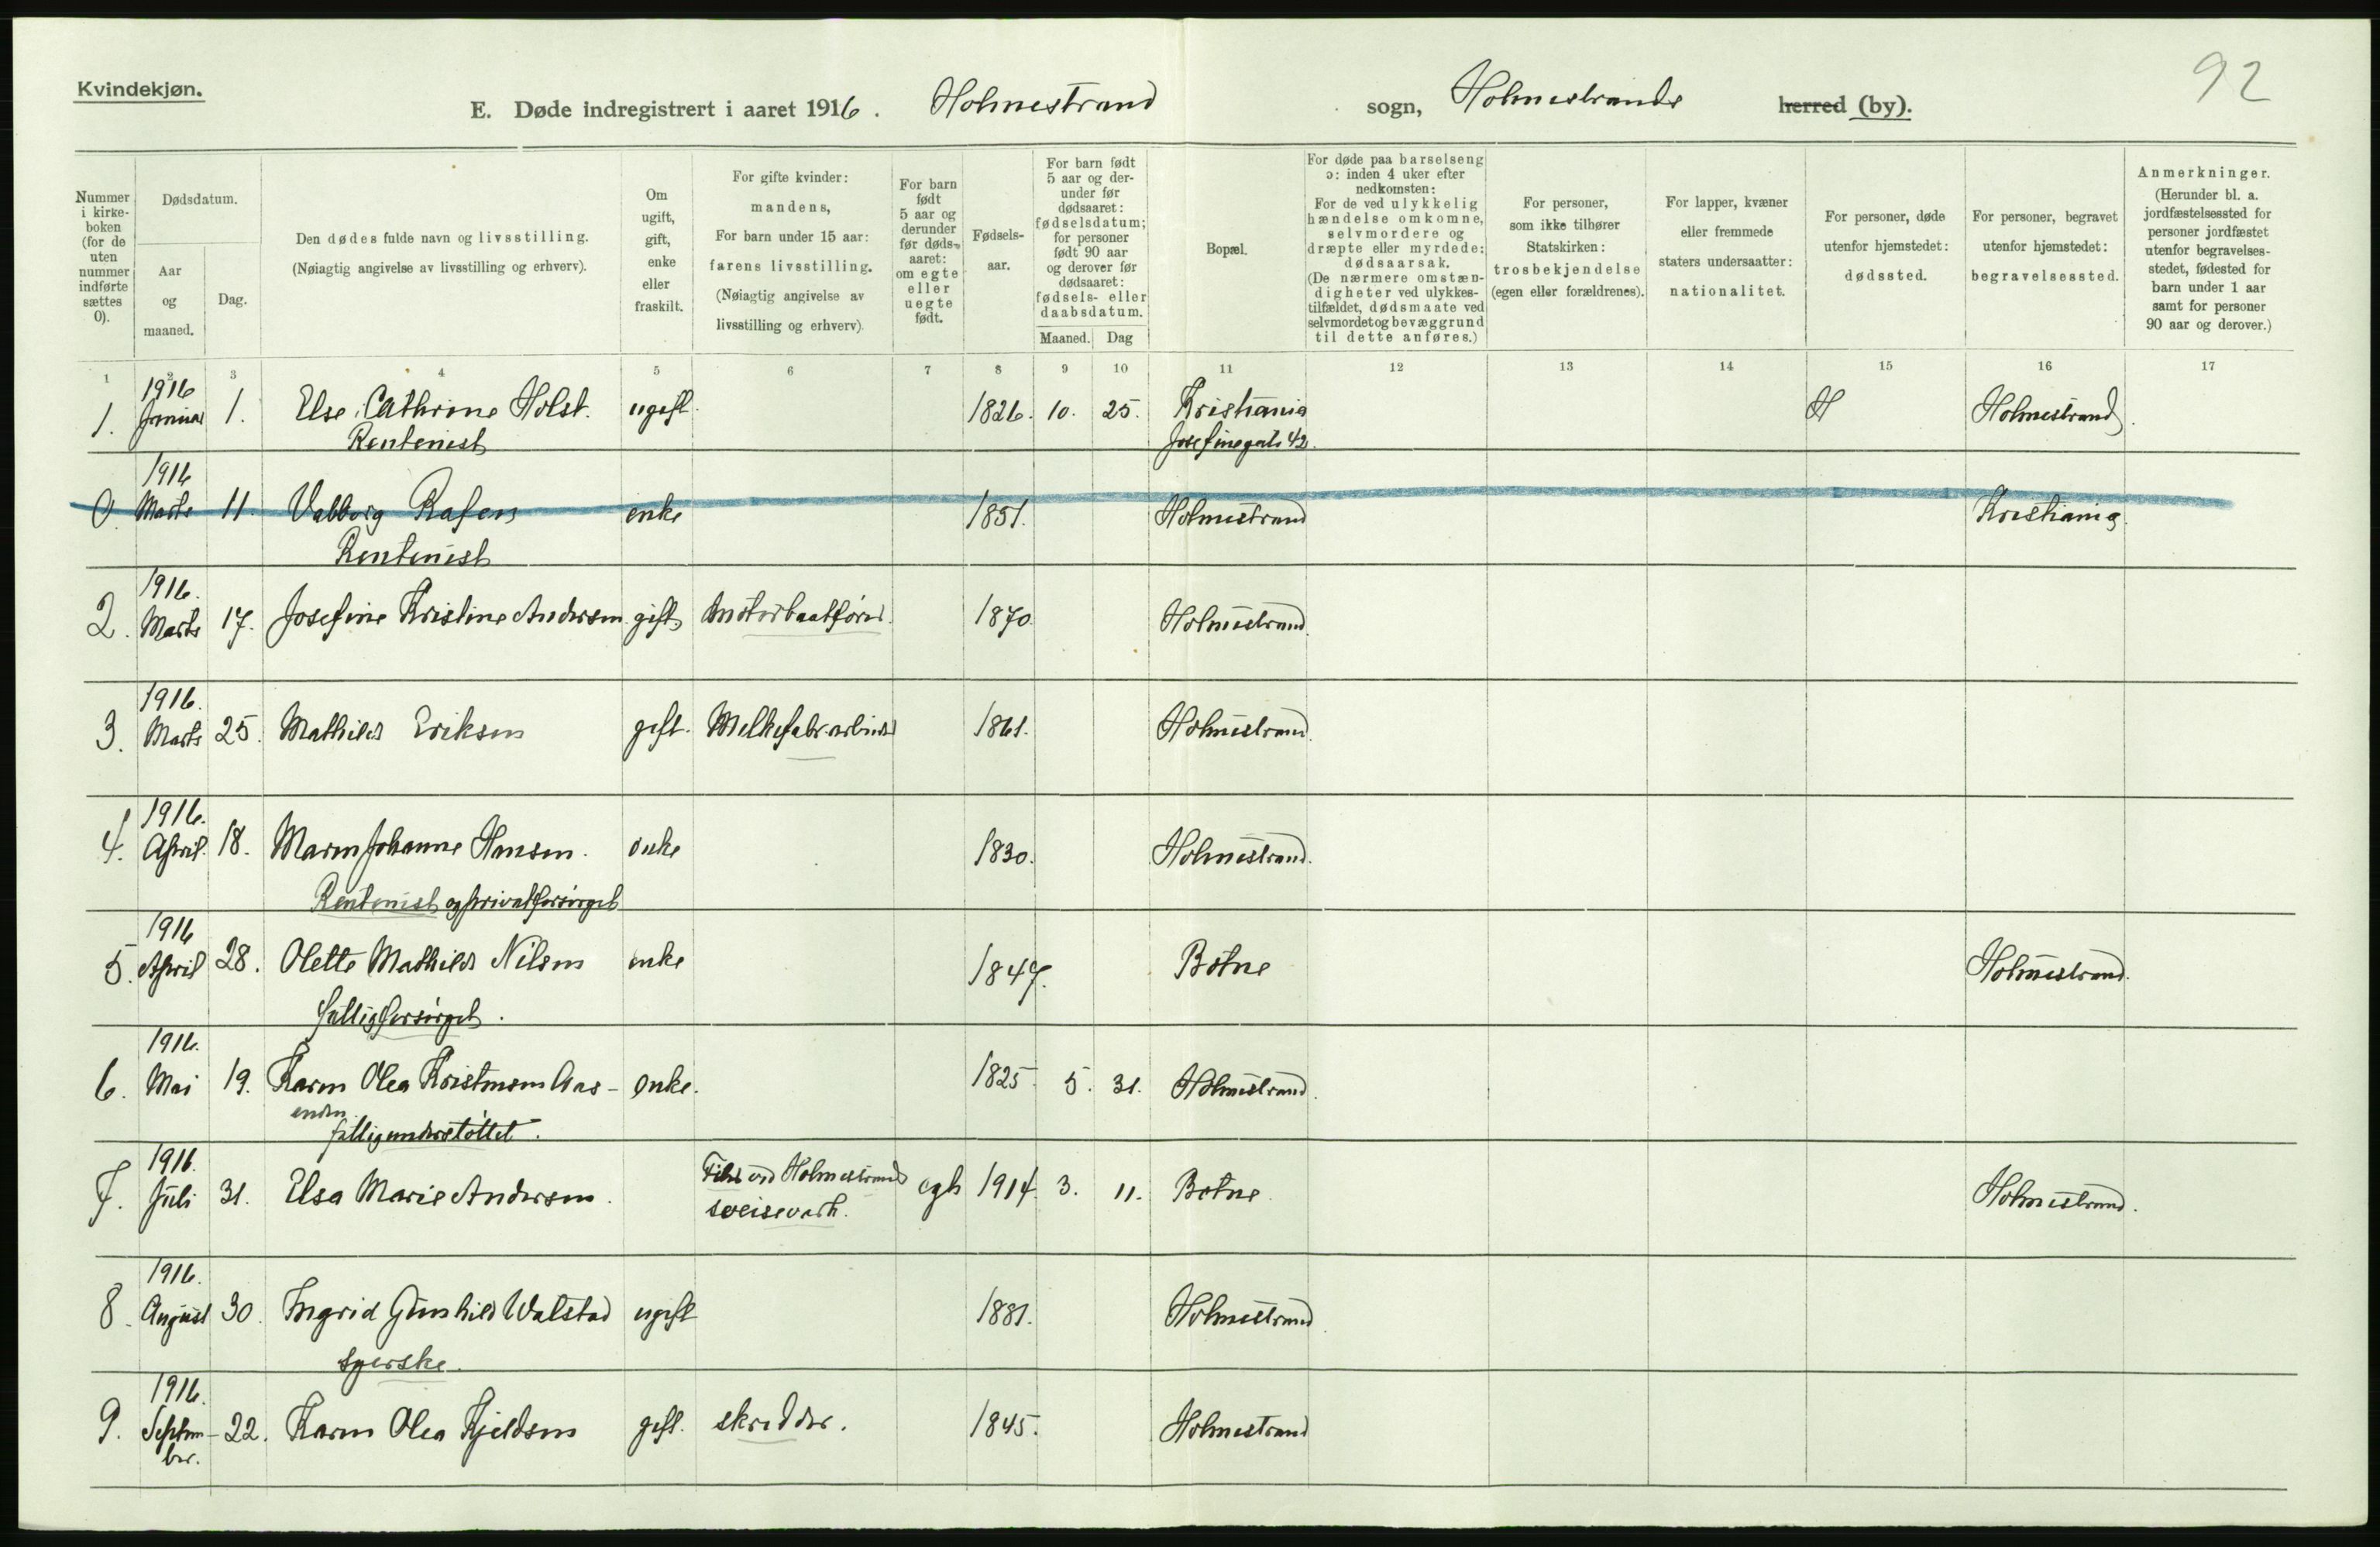 92
Kvindekjøn.
E. Døde indregistrert i aaret 1916. Holmestrand sogn, Holmestrands herred (by).
Nummer i kirke-boken (for de uten nummer indførte sættes 0).
Dødsdatum.
Aar og maaned.
Dag.
Den dødes fulde navn og livsstilling.
(Nøiagtig angivelse av livsstilling og erhverv).
Om ugift, gift, enke eller fraskilt.
For gifte kvinder: mandens,
For barn under 15 aar: farens livsstilling.
(Nøiagtig angivelse av livsstilling og erhverv).
For barn født 5 aar og derunder før døds-aaret: om egte eller uegte født.
Fødsels-aar.
For barn født 5 aar og der-under før dødsaaret: fødselsdatum; for personer født 90 aar og derover før dødsaaret: fødsels- eller daabsdatum.
Maaned. Dag
Bopæl.
For døde paa barselseng ɔ: inden 4 uker efter nedkomsten:
For de ved ulykkelig hændelse omkomne, selvmordere og dræpte eller myrdede: dødsaarsak.
(De nærmere omstæn-digheter ved ulykkes-tilfældet, dødsmaate ved selvmordet og bevæggrund til dette anføres.)
For personer, som ikke tilhører Statskirken: trosbekjendelse (egen eller forældrenes).
For lapper, kvæner eller fremmede staters undersaatter: nationalitet.
For personer, døde utenfor hjemstedet: dødssted.
For personer, begravet utenfor hjemstedet: begravelsessted.
Anmerkninger.
(Herunder bl. a. jordfæstelsessted for personer jordfæstet utenfor begravelses-stedet, fødested for barn under 1 aar samt for personer 90 aar og derover.)
1 2 3 4 5 6 7 8 9 10 11 12 13 14 15 16 17
1916
1. Januar 1. Else Cathrine Holst. ugift. 1826. 10. 25. Kristiania H Holmestrand.
Rentenist Josefinegate 42.
1916
0. Marts 11. Valborg Rafen enke 1851. Holmestrand Kristiania.
Rentenist
1916.
2. Marts 17. Josefine Kristine Andersen gift, Motorbaatfører. 1870. Holmestrand.
1916.
3. Marts 25. Mathilde Eriksen gift. Melkefabr.arbeider 1861. Holmestrand.
1916.
4. April. 18. Maren Johanne Hansen. enke 1830. Holmestrand.
Rentenist og privatforsørget
1916
5. April 28. Olette Mathilde Nilsen enke 1847. Botne Holmestrand.
fattigforsørget.
1916.
6. Mai 19. Karen Olea Kristensen Aas- enke. 1825. 5. 31. Holmestrand.
enden
fattigunderstøttet.
1916.
7. Juli 31. Elsa Marie Andersen. Filer ved Holmestrands egte 1914. 3. 11. Botne Holmestrand.
sveiseverk.
1916.
8. August 30. Ingrid Gunhild Walstad ugift 1881. Holmestrand.
Syerske.
1916.
9. Septem- 22. Karen Olea Kjeldsen gift. skredder. 1845. Holmestrand
ber.